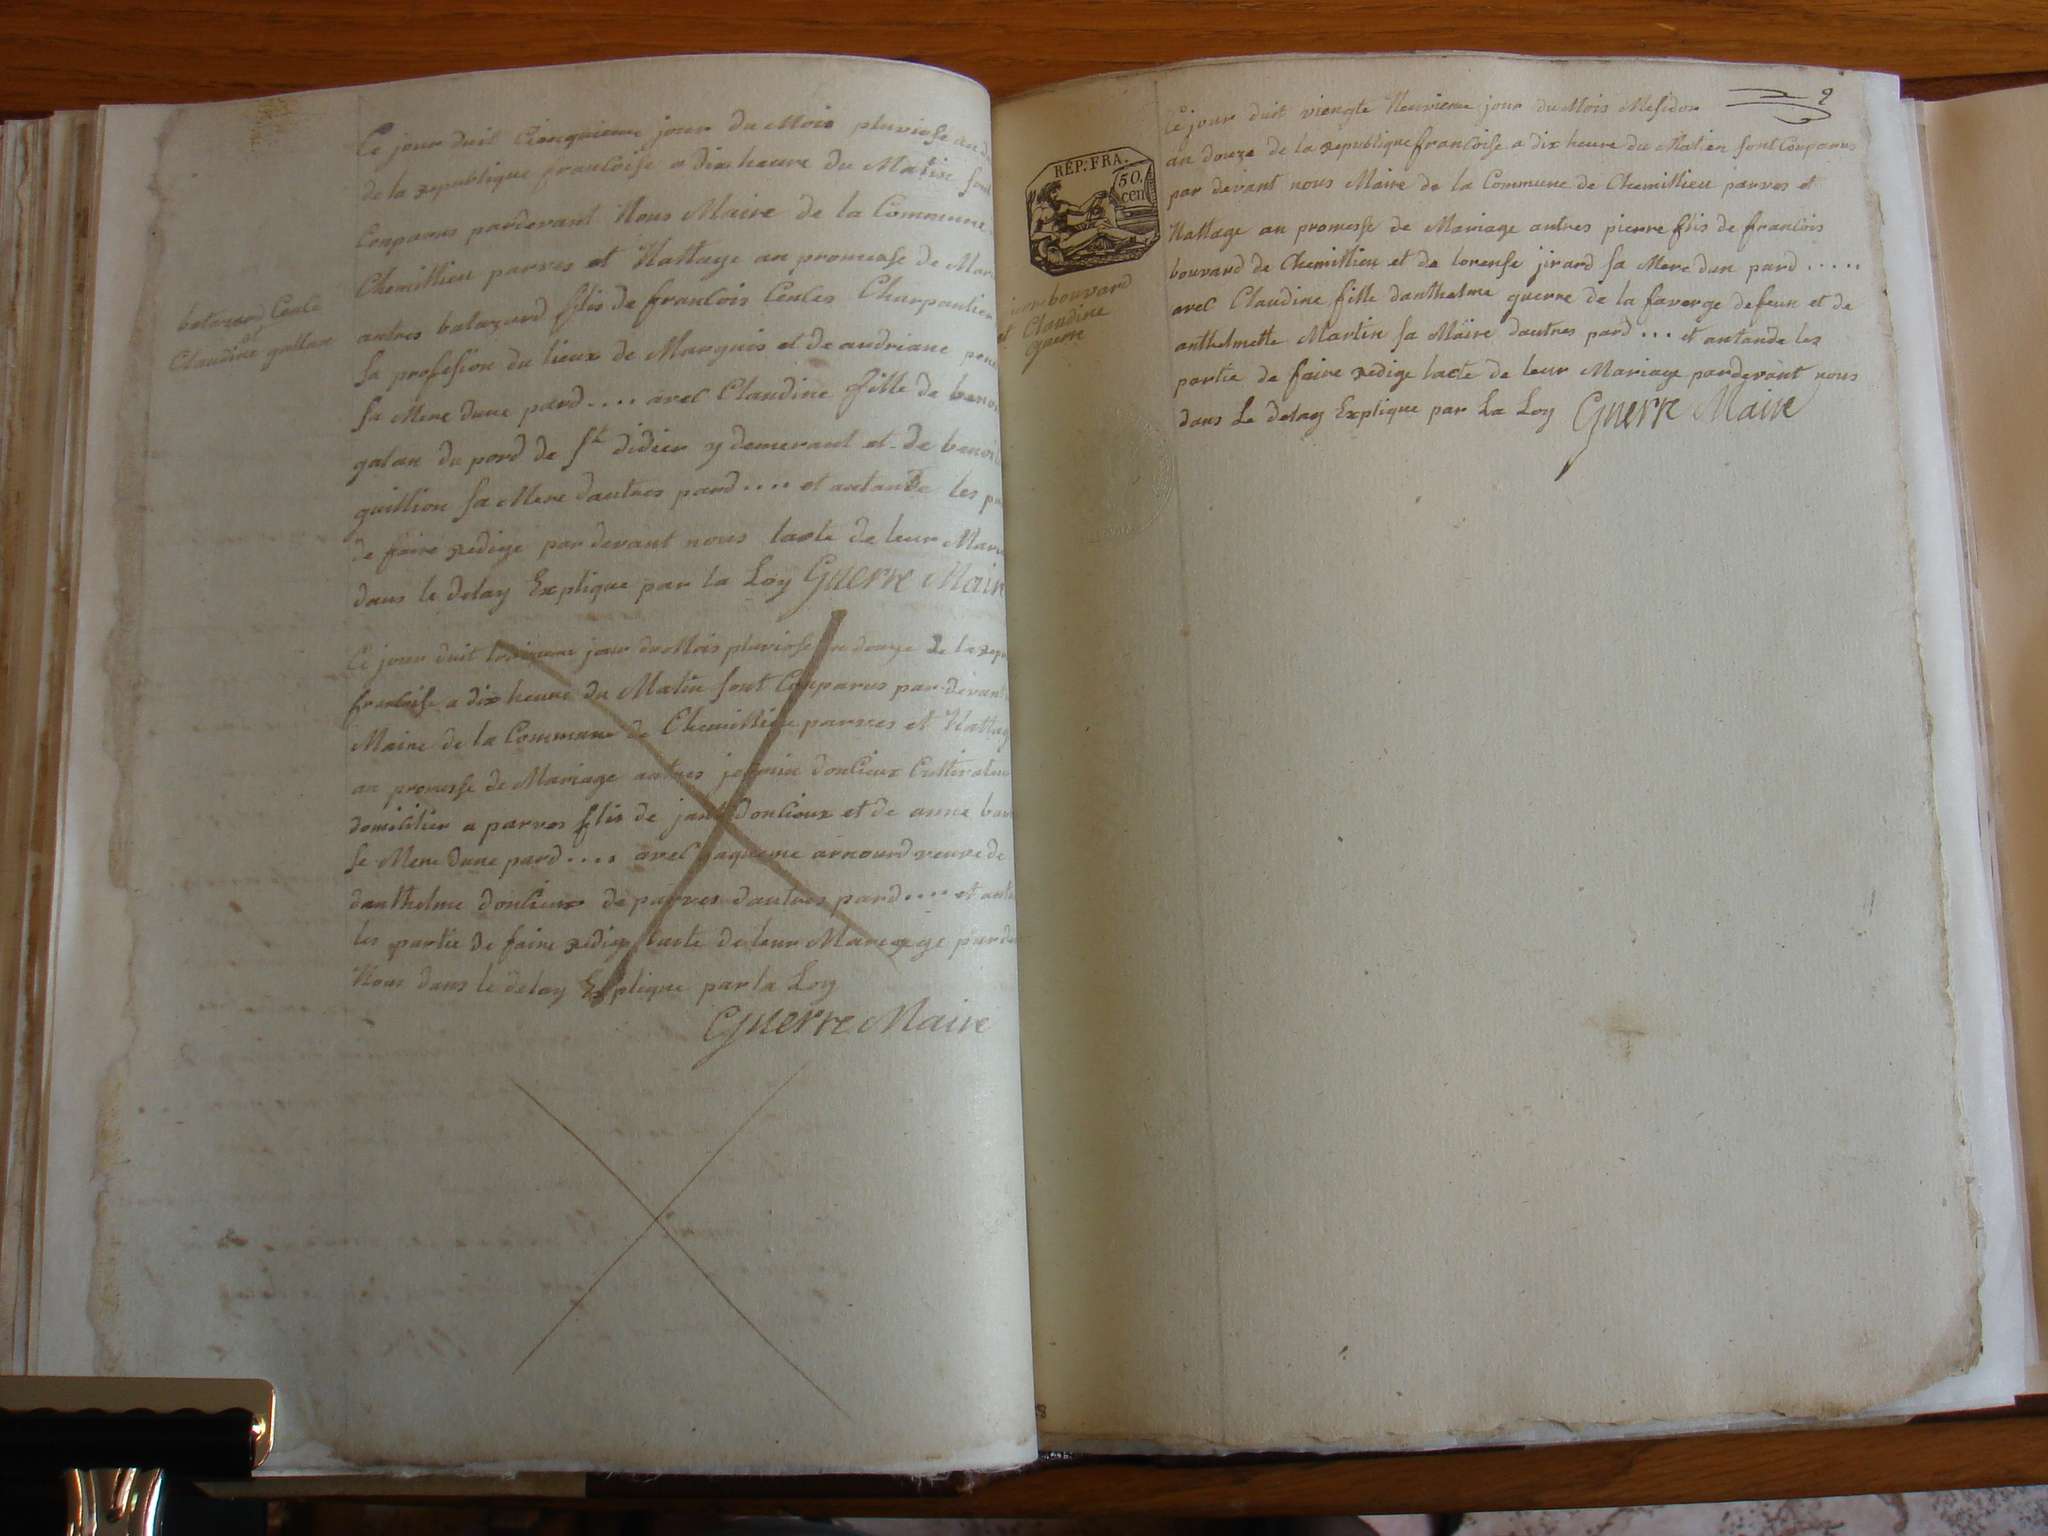 Ce jour duit Cienquieme jour du Mois pluviose an d
de la republique francoise a dix heure du Matin sont
Conparus pardevant Nous Maire de la Commune
Chemillieu parves et Nattage an promesse de Mar
batazard Ceale
et
Claudine gallan
antres batazard filis de francois Ceales Charpantier
sa profesion du lieux de Marguis et de andriane
sa Mere dune pard .... avel Claudine fille de beno
galan du pord de st didier y demerant et de benoi
guillion sa Mere dautres pard .... et antande les p
de faire redige par devant nous lacte de leur Mari
dans le delay Explique par la Loy Guerre Maire
Ce jour duit troisieme jour du Mois pluviose an douze de la repu
francoise a dix heure du Matin sont Conparus par devant
Maire de la Commune de Chemillieu parves et Nattag
an promesse de Mariage antres donlieux Cultivateur
domicilier a parves filis de jant donlioux et de anne bar
sa Mere dune pard .... avel jaqueme arnourd veuve de
danthelme donlieux de parves dautres pard .... et anta
les partie de faire redige lacte de leur Mareage parde
Nous dans le delay Explique par la Loy
Guerre Maire
2
Ce jour duit viengte Neuvieme jour du Mois Mesidor
an douze de la republique francoise a dix heure du Matien sont Conparus
par devant nous Maire de la Commune de Chemillieu parves et
Nattage an promesse de Mariage antres pierre filis de francois
bouvard de Chemillieu et de lorense jirard sa Mere dun pard .....
avel Claudine fille danthelme guerre de la faverge defeun et de
anthelmette Martin sa Maire dautres pard ... et antande les
partie de faire redige lacte de leur Mariage pardevant nous
dans Le delay Explique par La Loy Guerre Maire
RÉP. FRA.
50.
cen
bouvard
et Claudine
guerre